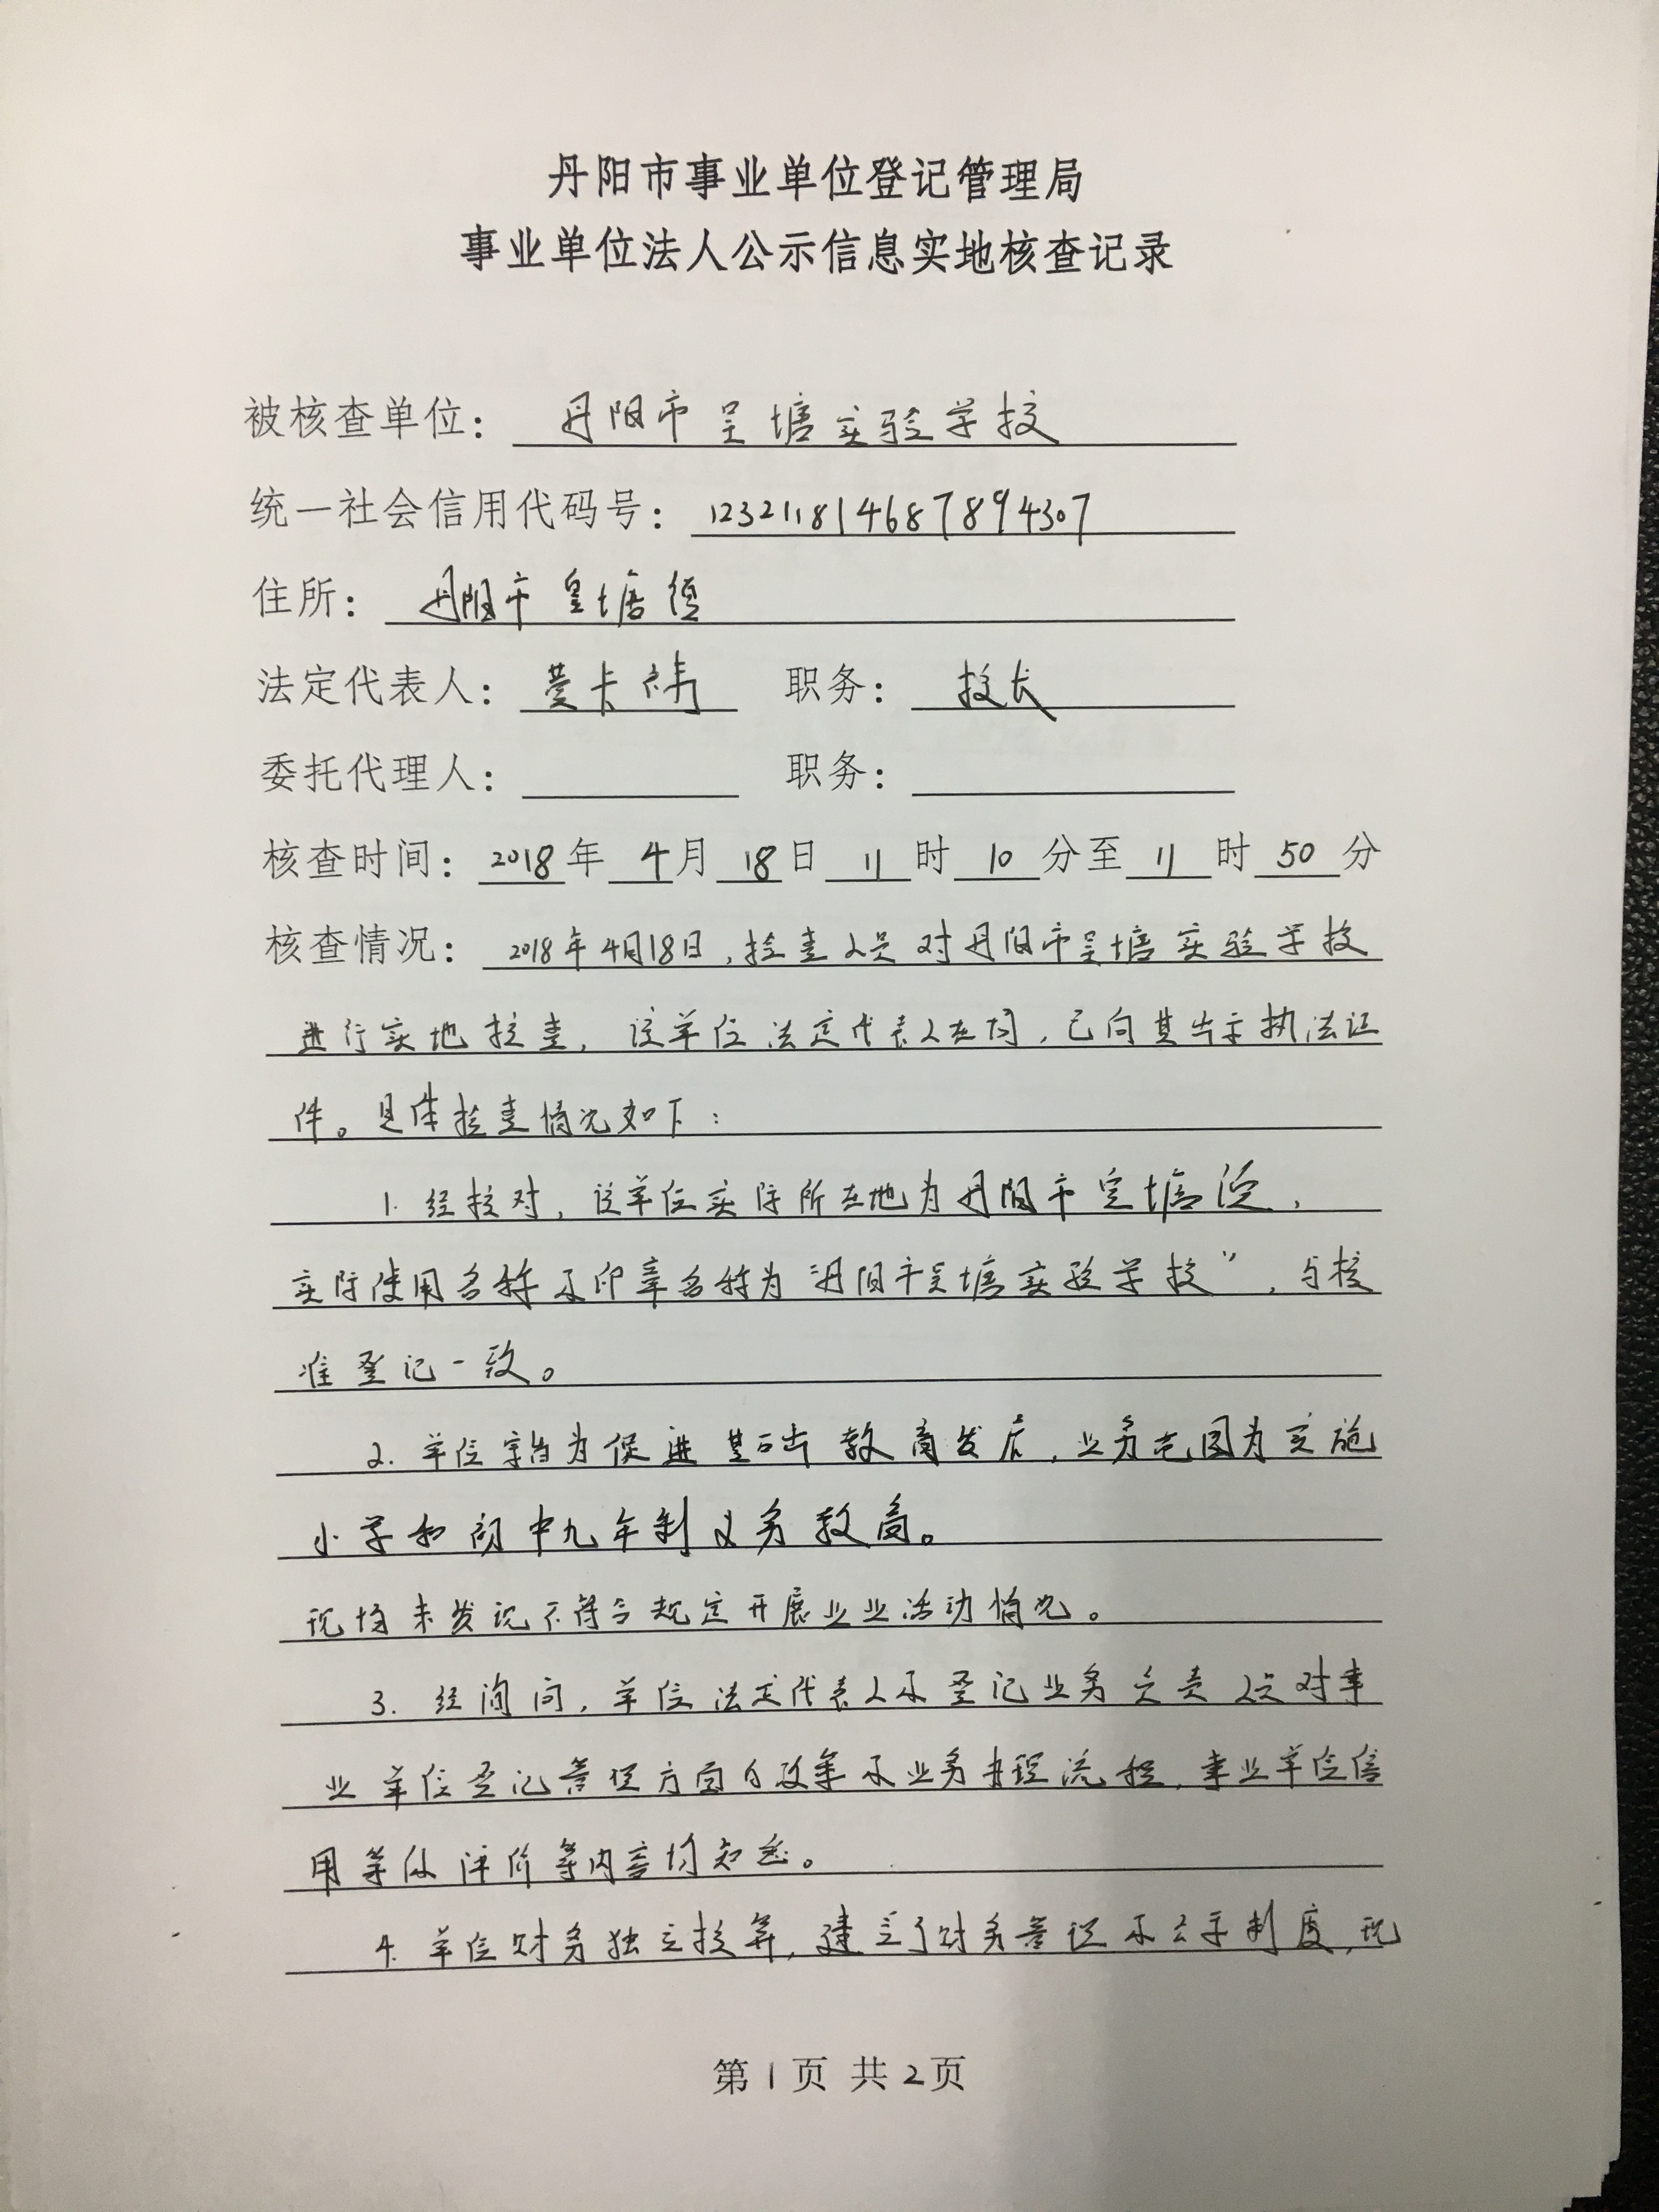 丹阳市事业单位登记管理局
事业单位法人公示信息实地核查记录
被核查单位：丹阳市吴塘实验学校
统一社会信用代码号：123211814687894307
住所：丹阳市皇塘镇
法定代表人： 职务：校长
委托代理人： 职务：
核查时间：2018年4月18日11时10分至11时50分
核查情况：2018年4月18日，检查人员对丹阳市吴塘实验学校
进行实地核查，该单位法定代表人在场，已向其出示执法证
件。具体检查情况如下：
1. 经核对，该单位实际所在地为丹阳市皇塘镇，
实际使用名称及印章名称为“丹阳市吴塘实验学校”，与核
准登记一致。
2. 单位宗旨为促进基础教育发展，业务范围为实施
小学和初中九年制义务教育。
现场未发现不符合规定开展业业活动情况。
3. 经询问，单位法定代表人及登记业务负责人员对事
业单位登记管理方面的政策及业务办理流程，事业单位信
用等级评价等内容均知悉。
4. 单位财务独立核算，建立了财务管理及公示制度，现
第1页 共2页